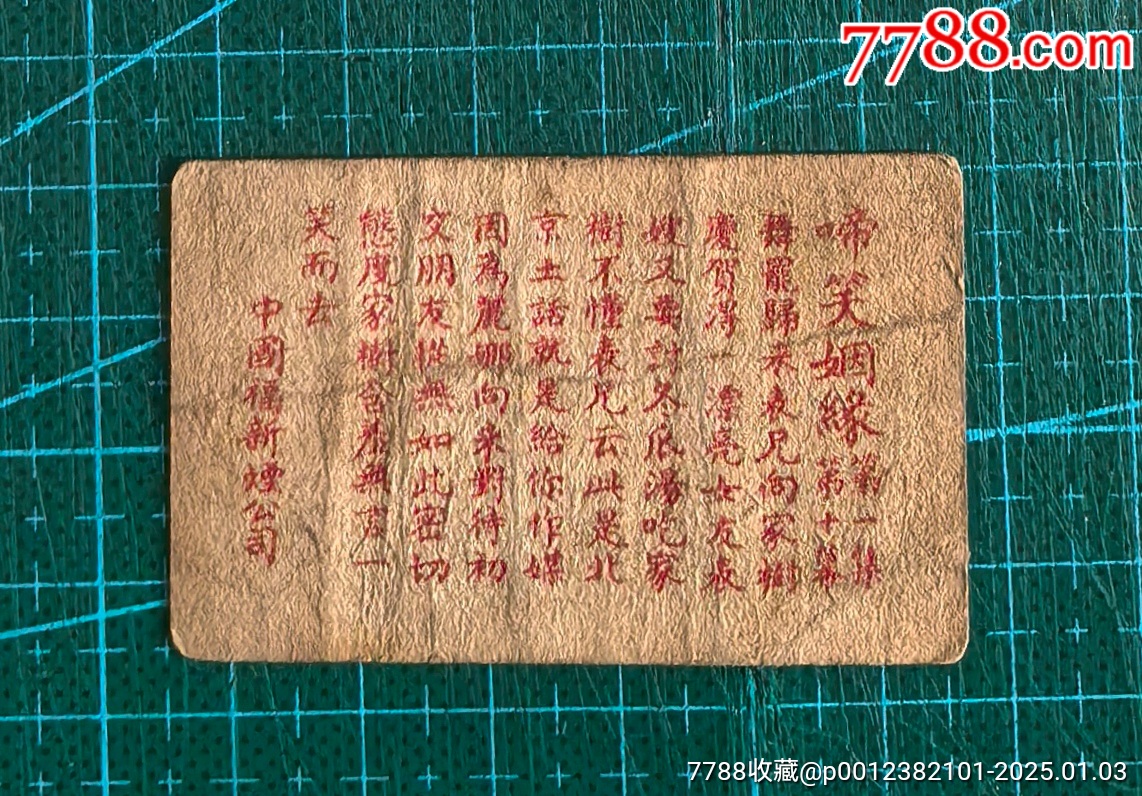 7788.com
啼笑姻緣 第一集 第十幕
舞罷歸來表兄向家樹
慶賀得一漂亮女友表
嫂又要討冬瓜湯吃家
樹不懂表兄云此是北
京土話就是給你作媒
因為麗娜向來對待初
交朋友從無如此密切
態度家樹含羞無言一
笑而去
中國福新煙公司
7788收藏@p0012382101-2025.01.03